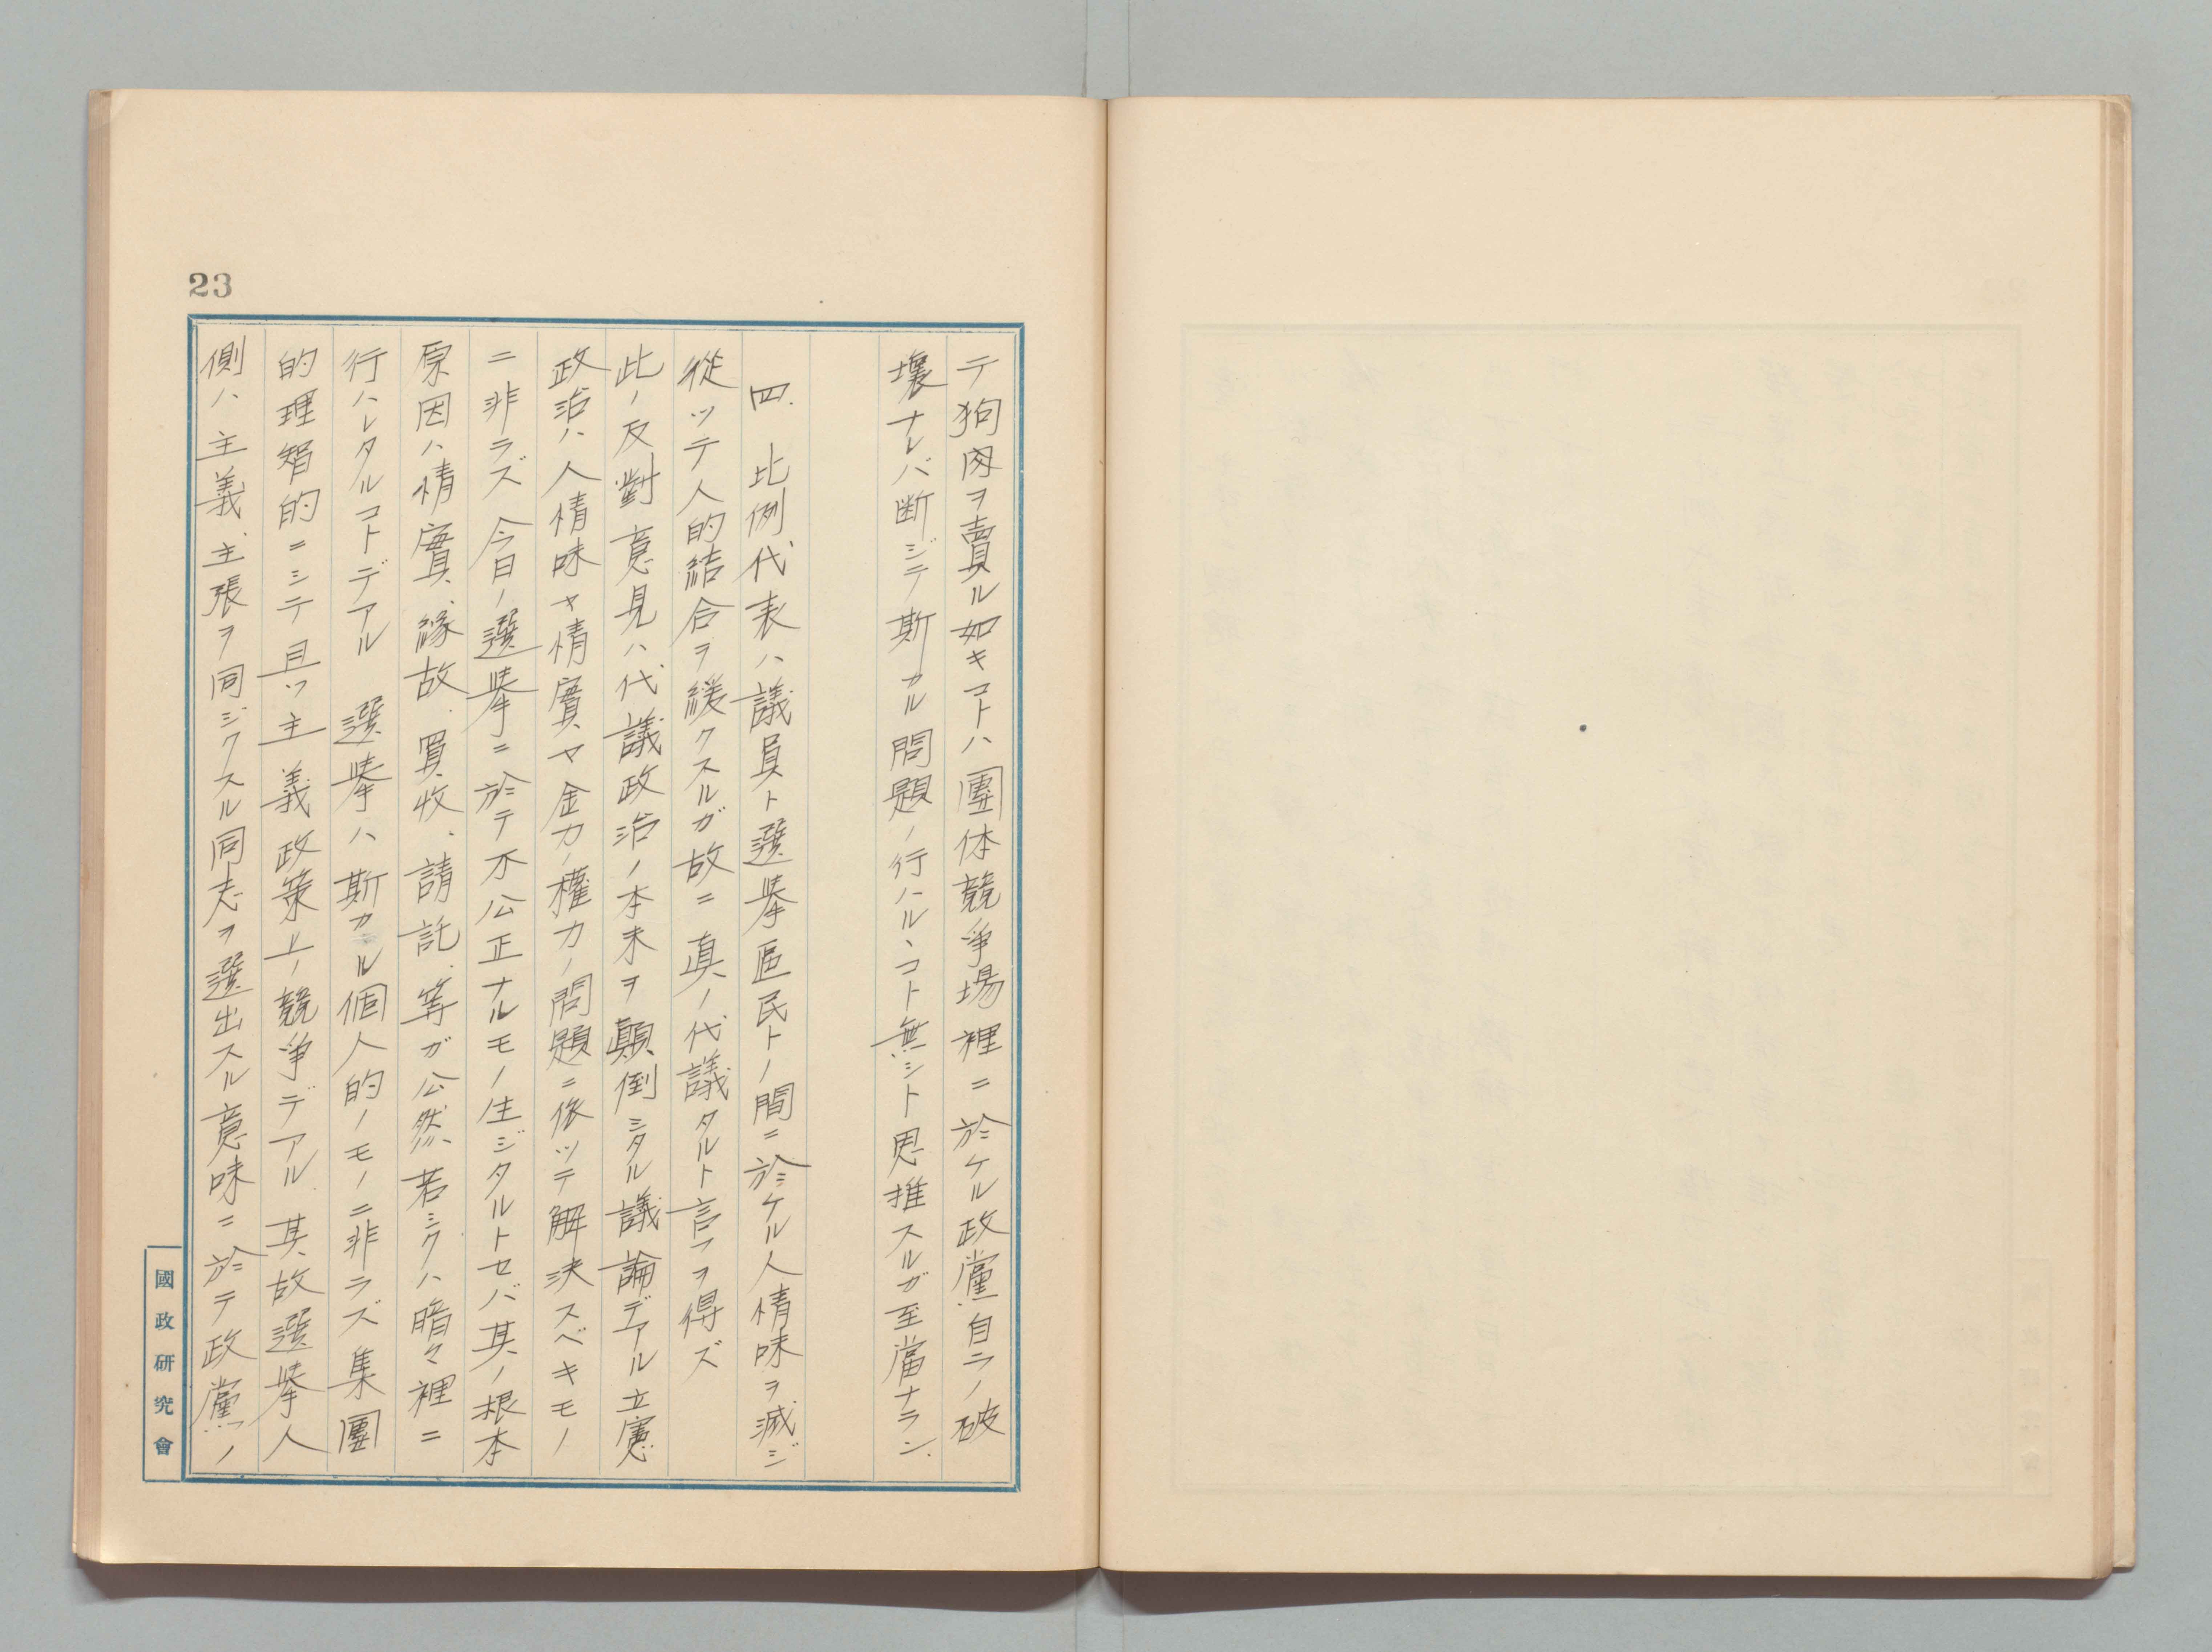 23
テ狗肉ヲ賣ル如キコトハ團体競争場裡ニ於ケル政黨自ラノ破
壞ナレバ断ジテ斯カル問題ノ行ハルヽコト無シト思推スルガ至當ナラン.
四. 比例代表ハ議員ト選挙區民トノ間ニ於ケル人情味ヲ減ジ
從ツテ人的結合ヲ緩クスルガ故ニ眞ノ代議タルト言フヲ得ズ
此ノ反對意見ハ代議政治ノ本末ヲ顛倒シタル議論デアル立憲
政治ハ人情味ヤ情實ヤ金力ノ權力ノ問題ニ依ツテ解決スベキモノ
ニ非ラズ今日ノ選挙ニ於テ不公正ナルモノ生ジタルトセバ其ノ根本
原因ハ情實、緣故、買收、請託、等ガ公然若シクハ暗々裡ニ
行ハレタルコトデアル 選挙ハ斯カル個人的ノモノニ非ラズ集團
的理智的ニシテ且ツ主義政策上ノ競争デアル 其故選挙人
側ハ主義、主張ヲ同ジクスル同志ヲ選出スル意味ニ於テ政黨ノ
國政研究會